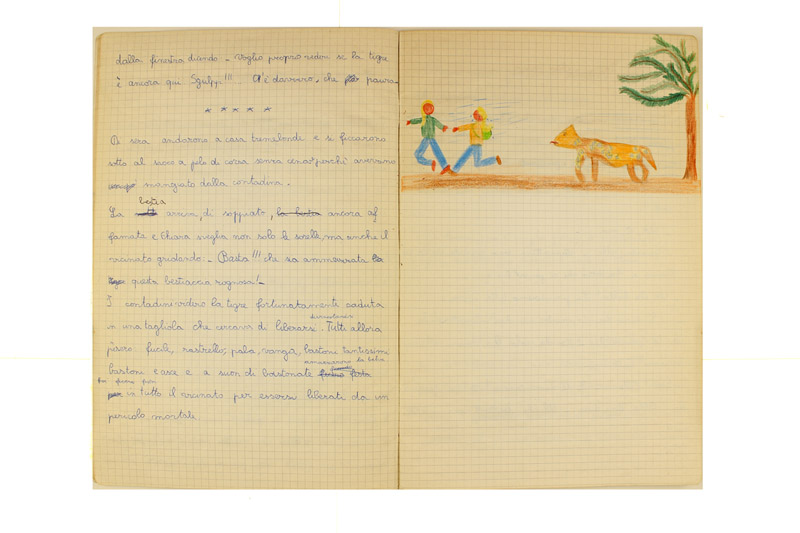 dalla finestra dicendo - Voglio proprio vedere se la tigre
è ancora qui Sgulp!!! C'è davvero, che paura
* * * * *
Di sera andarono a casa tremebonde e si ficcarono
sotto al sacco a pelo di corsa senza cena perchè avevano
mangiato dalla contadina.
bestia
La arriva, di soppiatto, la bestia ancora af
famata e Chiara sveglia non solo la sorella, ma anche il
vicinato gridando: - Basta!!! che sia ammazzata
questa bestiaccia rognosa! -
I contadini videro la tigre fortunatamente caduta
in una tagliola che cercava di liberarsi. Tutti allora
presero fucili, rastrello, pala, vanga, bastone tantissimi
ammazzarono la belva
bastoni e asce e a suon di bastonate festa
fu
in tutto il vicinato per essersi liberati da un
pericolo mortale.